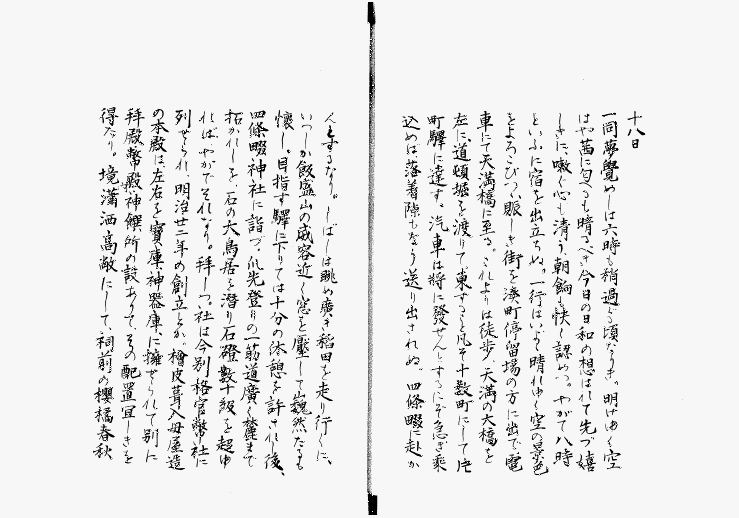 十八日
一同夢覺めしは六時も稍過ぐる頃なりき。明けゆく空
はや茜に匂へるも晴るべき今日の日和の想はれて先づ嬉
しきに、嗽ぐ心も清う、朝餉も快く認めつ。やがて八時
といふに宿を出立ちぬ。一行はいよく晴れゆく空の景色
をよろこびつゝ賑しき街を湊町停留場の方に出で電
車にて天満橋に至る。これよりは徒歩、天満の大橋を
左に、道頓堀を渡りて東すること凡そ十数町にして片
町驛に達す。汽車は將に發せんとするにぞ急ぎ乘
込めば落着隙もなう送り出されぬ。四條畷に赴か
んとするなり。しばしは眺め廣き稲田を走り行くに、
いつしか飯盛山の威容近く窓を壓して巍然たるも
懷し。目指す驛に下りては十分の休憩を許され後、
四條畷神社に詣づ。爪先登りの一筋道廣く麓まで
拓かれしを、石の大鳥居を潜り石磴数十級を超ゆ
ればやがてそれなり。拜しつ、社は今別格官幣社に
列せられ、明治廿二年の創立とか。檜皮葺入母屋造
の本殿は、左右を寶庫、神器庫に擁せられて別に
拜殿、幣殿、神饌所の設ありて、その配置宜しきを
得たり。境瀟洒高敞にして、祠前の櫻橘春秋